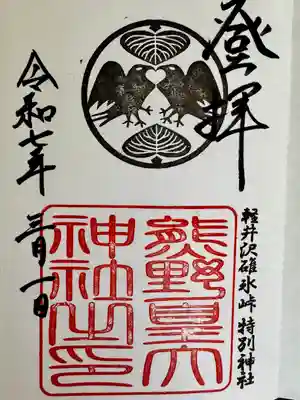 登拝
軽井沢碓氷峠 特別神社
熊野皇大
神社之印
令和七年
三月一日